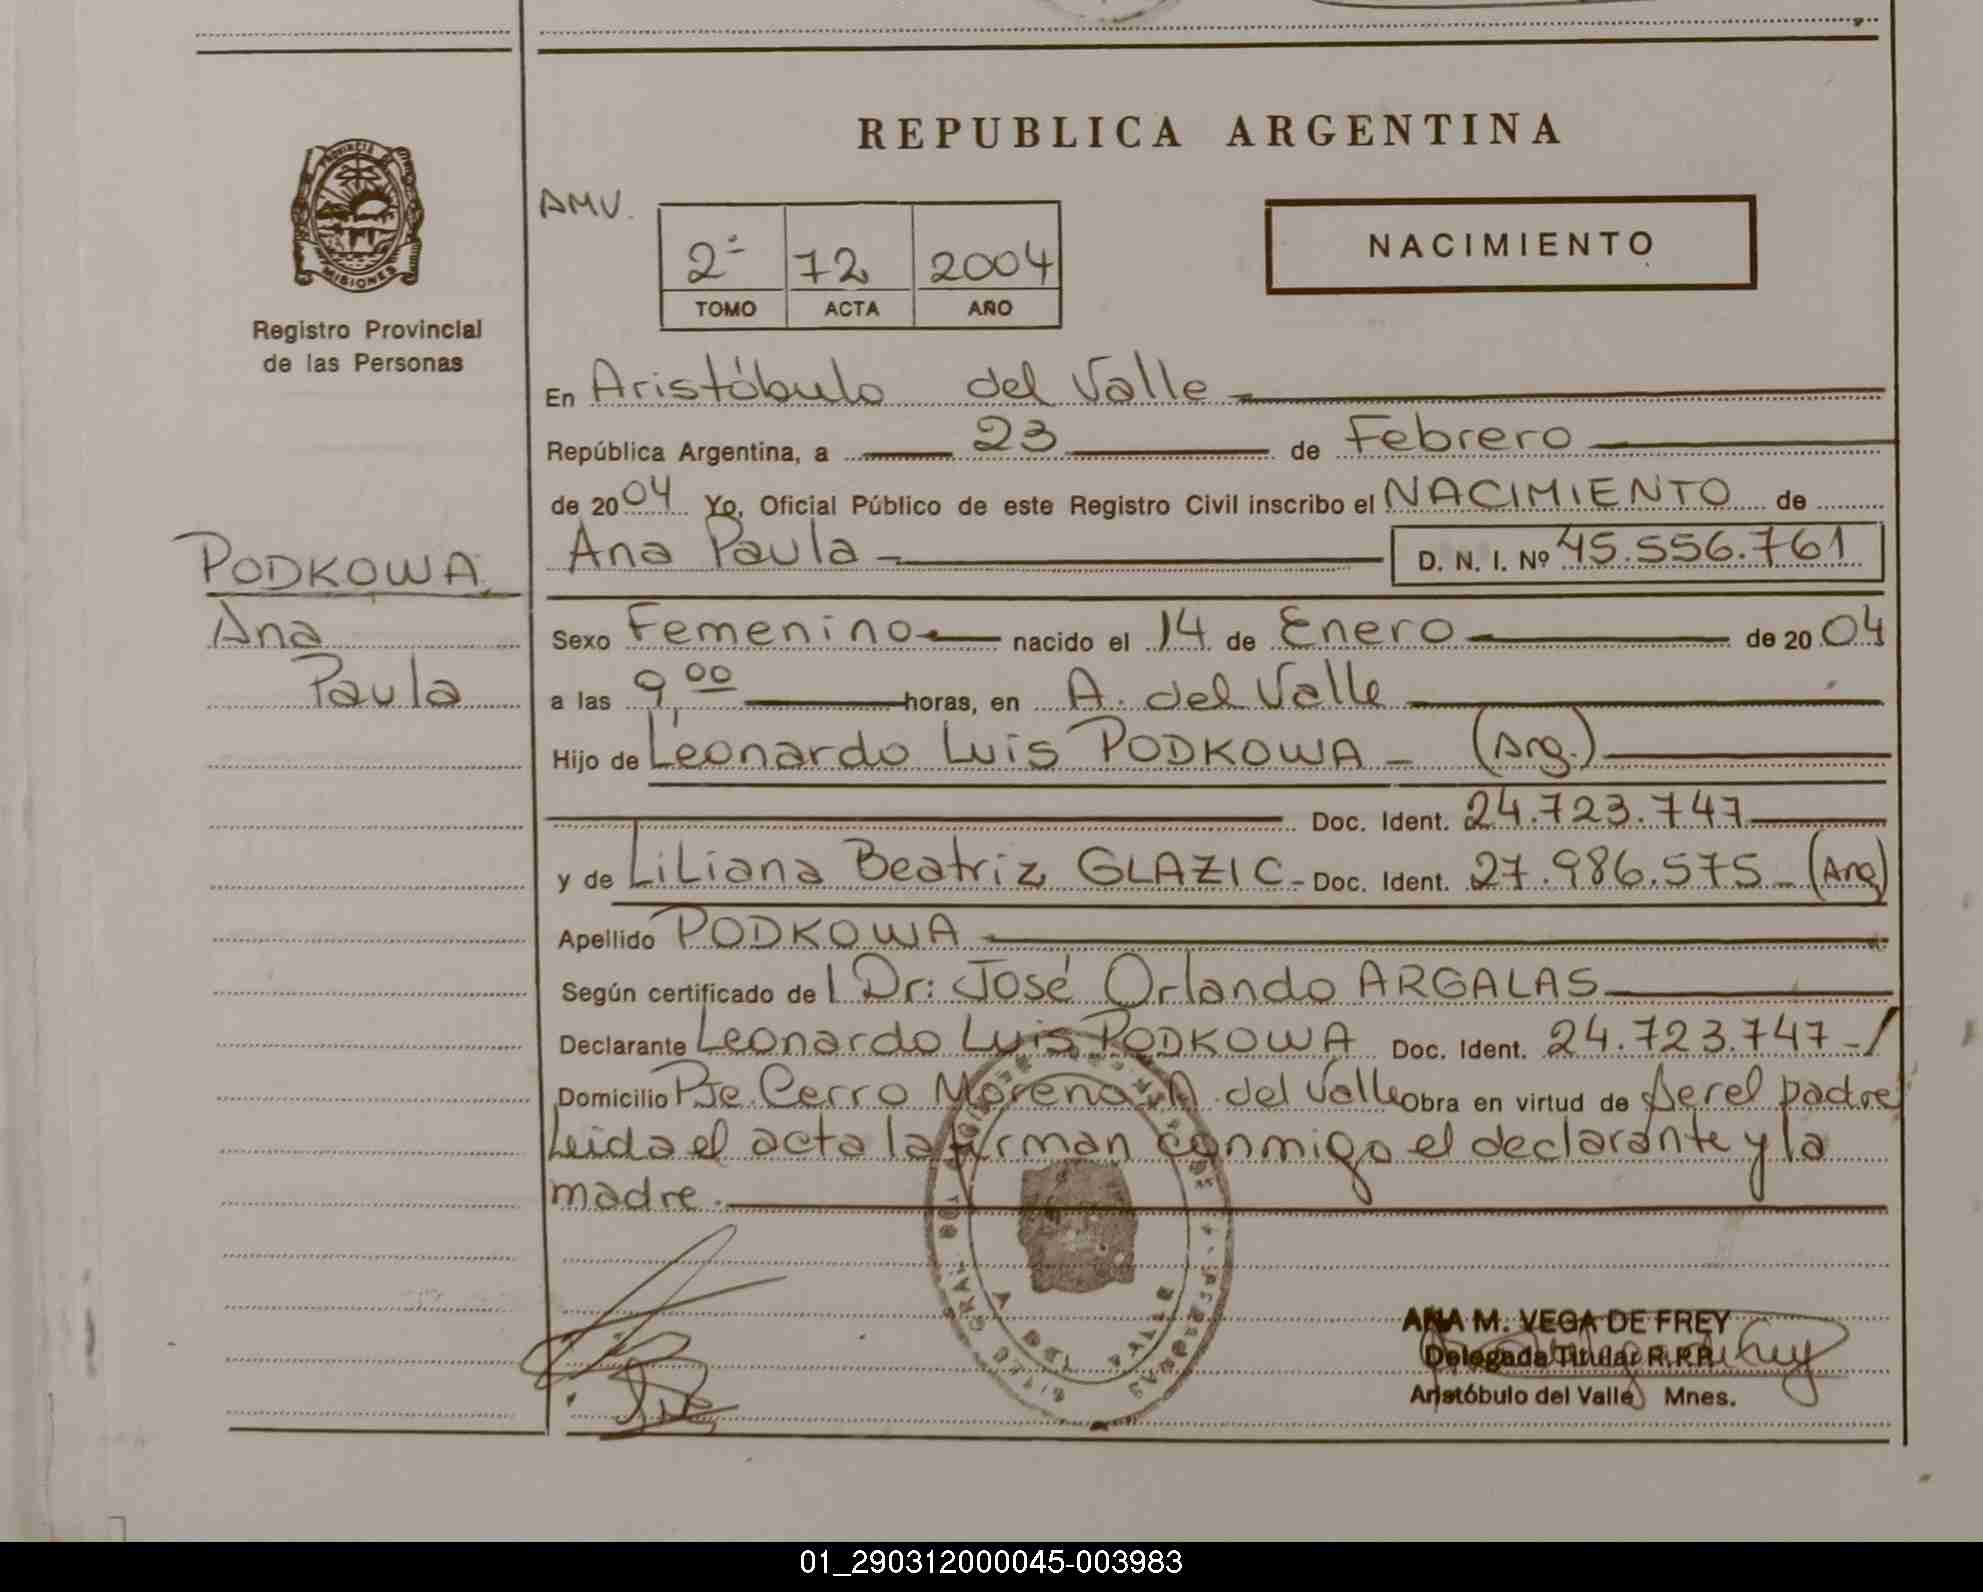 REPUBLICA ARGENTINA
PROVINCIA DE
MISIONES
Registro Provincial
de las Personas
AMV.
2º 72 2004
TOMO ACTA AÑO
NACIMIENTO
En Aristóbulo del Valle
República Argentina, a 23 de Febrero
de 2004 Yo, Oficial Público de este Registro Civil inscribo el NACIMIENTO de
Ana Paula D. N. I. Nº 45.556.761
PODKOWA
Ana
Paula
Sexo Femenino nacido el 14 de Enero de 2004
a las 9,00 horas, en A. del Valle
Hijo de Leonardo Luis PODKOWA - (Arg.)
Doc. Ident. 24.723.747
y de Liliana Beatriz GLAZIC - Doc. Ident. 27.986.575 - (Arg)
Apellido PODKOWA
Según certificado de l Dr: José Orlando ARGALAS
Declarante Leonardo Luis PODKOWA Doc. Ident. 24.723.747 -/
Domicilio Pje. Cerro Moreno A. del Valle Obra en virtud de ser el padre
Leida el acta la firman conmigo el declarante y la
madre.
ANA M. VEGA DE FREY
Delegada Titular R.P.P.
Aristóbulo del Valle Mnes.
01_290312000045-003983